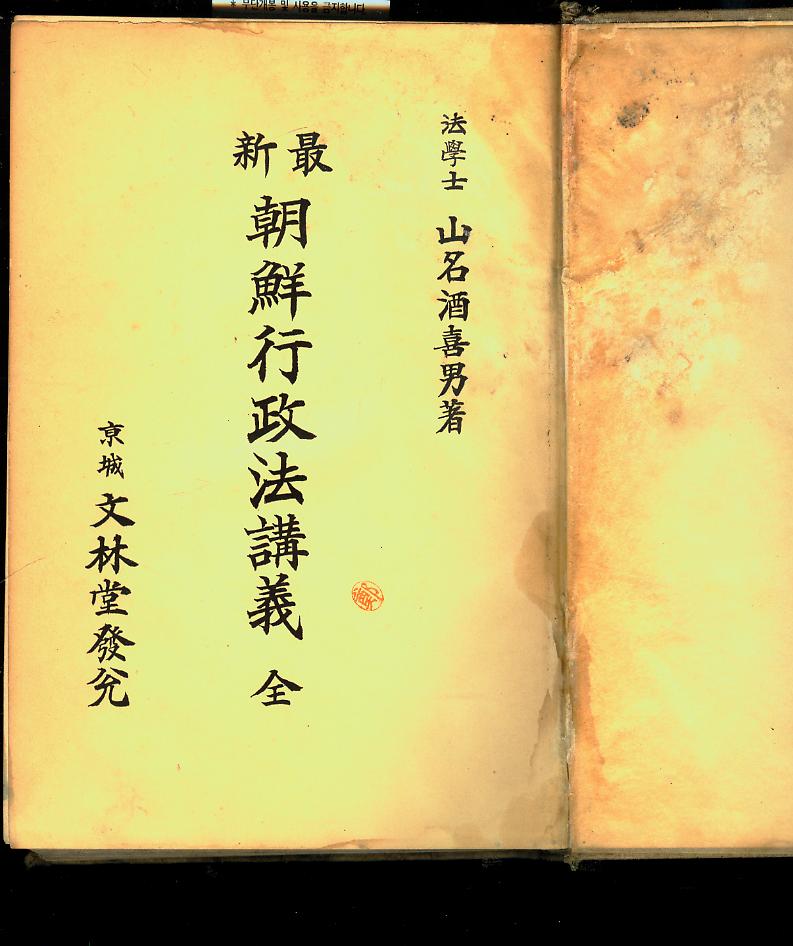 * 무단개봉 및 사용을 금지합니다
法學士 山名酒喜男著
最新 朝鮮行政法講義 全
京城 文林堂發兌